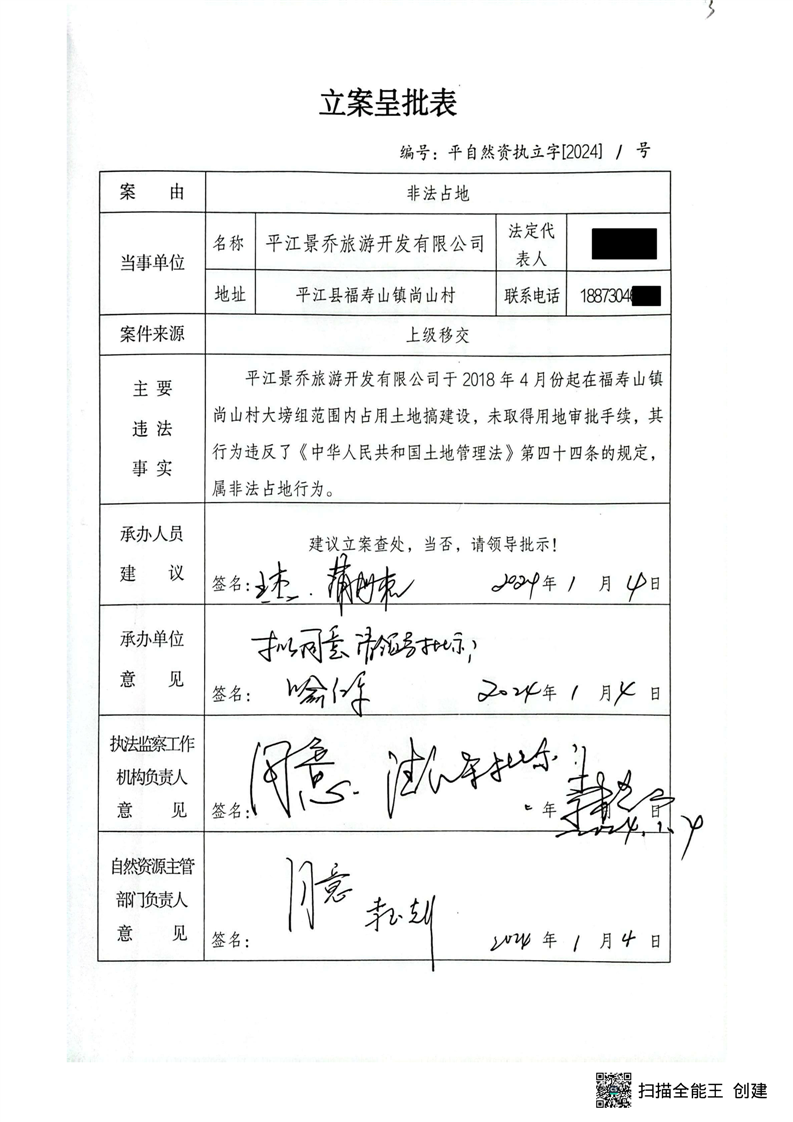 3
立案呈批表
编号：平自然资执立字[2024] 1 号
案 由 非法占地
当事单位 名称 平江景乔旅游开发有限公司 法定代表人
地址 平江县福寿山镇尚山村 联系电话 1887304
案件来源 上级移交
主要违法事实
平江景乔旅游开发有限公司于 2018 年 4 月份起在福寿山镇
尚山村大塝组范围内占用土地搞建设，未取得用地审批手续，其
行为违反了《中华人民共和国土地管理法》第四十四条的规定，
属非法占地行为。
承办人员建 议
建议立案查处，当否，请领导批示！
签名： 2024年 1 月 4 日
承办单位意 见
拟同意 请领导批示；
签名： 2024年 1 月 4 日
执法监察工作机构负责人意 见
同意 请领导批示
签名： 年 日
2024.1.4
自然资源主管部门负责人意 见
同意
签名： 2024 年 1 月 4 日
扫描全能王 创建